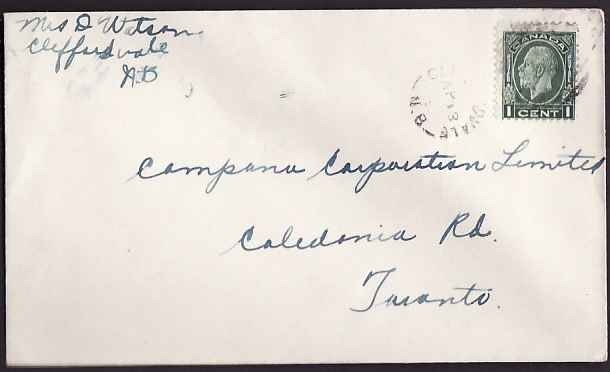 Mrs D Watson
Cliffordvale
N.B
CANADA
1 CENT 1
N.B.
AP 18
Campana Corporation Limited
Caledonia Rd.
Toronto.